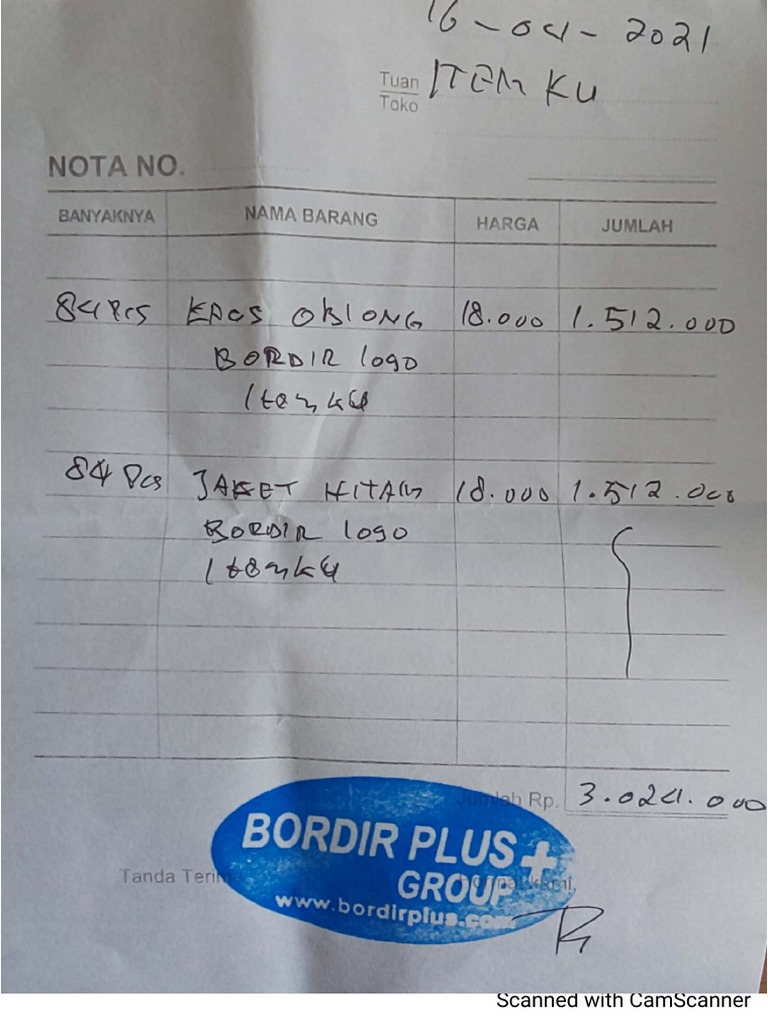 16-04-2021
Tuan ITEM KU
Toko
NOTA NO.
BANYAKNYA NAMA BARANG HARGA JUMLAH
84 Pcs KAOS OBLONG 18.000 1.512.000
BORDIR logo
Itemku
84 Pcs JAKET HITAM 18.000 1.512.000
BORDIR logo
Itemku
Jumlah Rp. 3.024.000
BORDIR PLUS+
Tanda Terima
GROUP
www.bordirplus.com
Scanned with CamScanner